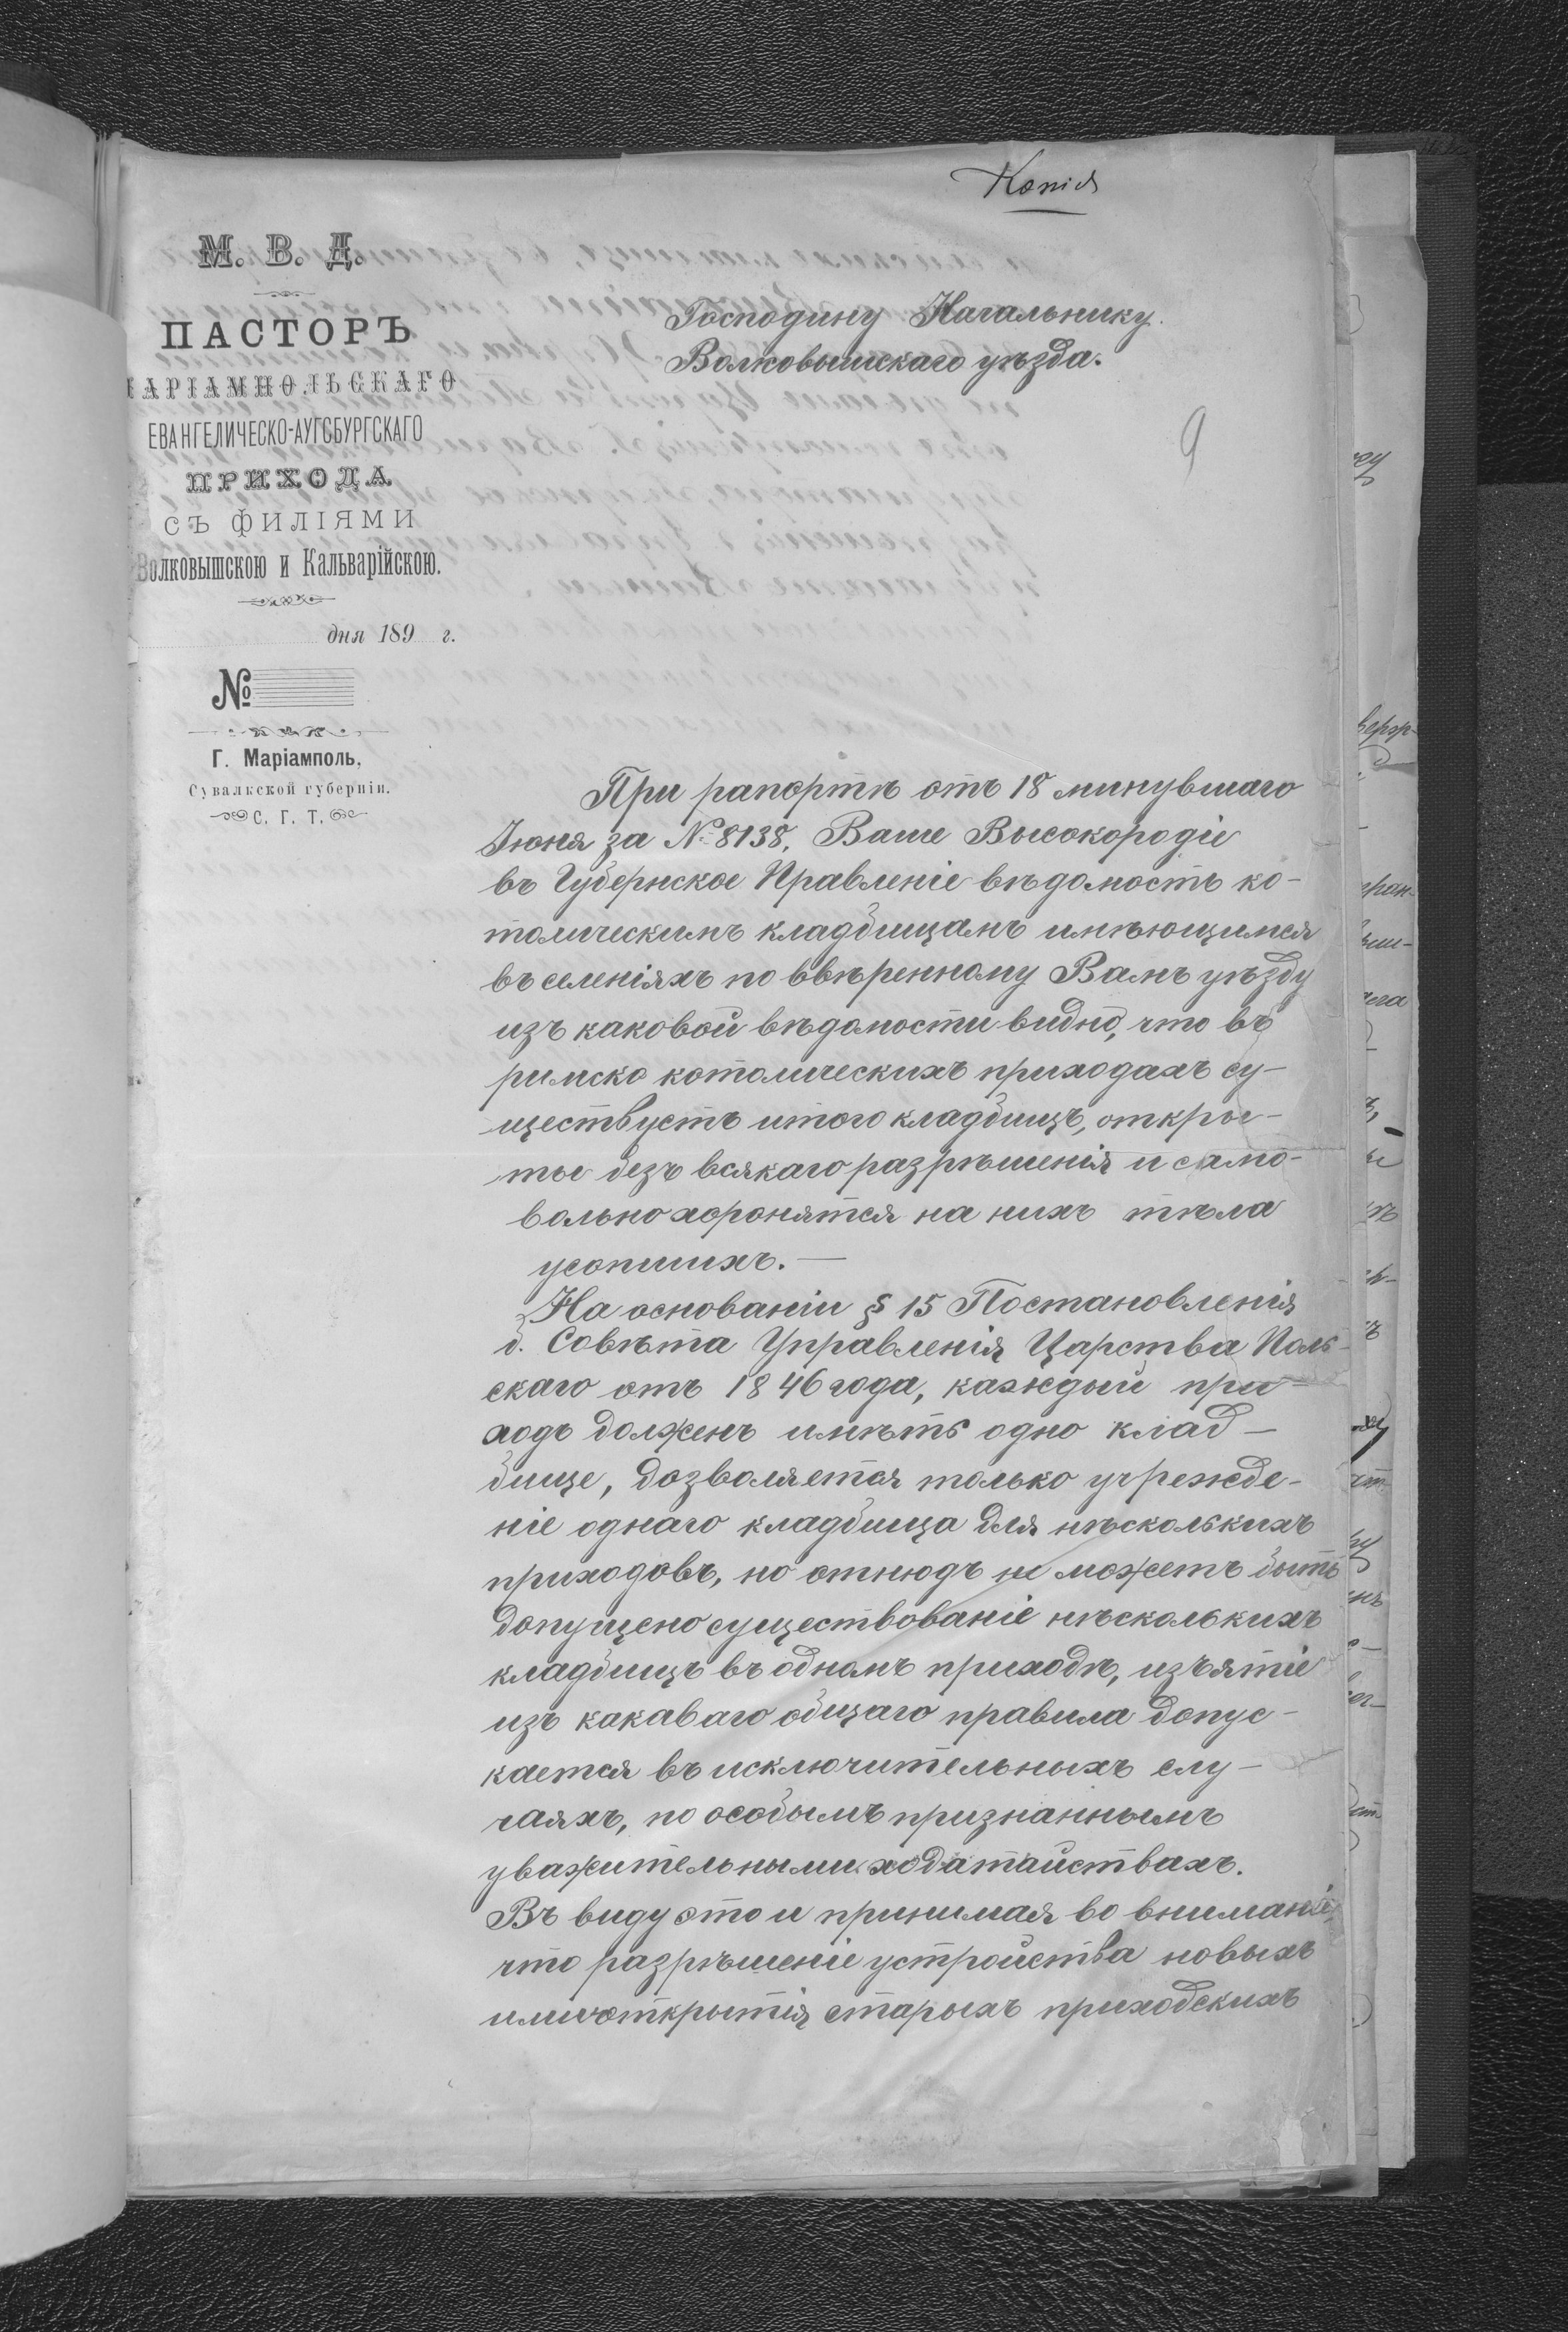 Копія
М. В. Д.
ПАСТОРЪ
МАРІАМПОЛЬСКАГО
ЕВАНГЕЛИЧЕСКО-АУГСБУРГСКАГО
ПРИХОДА
СЪ ФИЛІЯМИ
Волковышскою и Кальварійскою.
дня 189 г.
№
Г. Маріамполь,
Сувалкской губерніи.
С. Г. Т.
Господину Начальнику
Волковышскаго уѣзда.
9
При рапортѣ отъ 18 минувшаго
Іюня за № 8138, Ваше Высокородіе
въ Губернское Правленіе вѣдомость ко-
толическимъ кладбищамъ имѣющимся
въ селеніяхъ по ввѣренному Вамъ уѣзду
изъ каковой вѣдомости видно, что въ
римско котолическихъ приходахъ су-
ществуетъ итого кладбищъ, откры-
ты безъ всякаго разрѣшенія и само-
вольно хоронятся на нихъ тѣла
усопшихъ. —
На основаніи § 15 Постановленія
б. Совѣта Управленія Царства Поль-
скаго отъ 1846 года, каждый при-
ходъ долженъ имѣть одно клад-
бище, дозволяется только учрежде-
ніе однаго кладбища для нѣсколькихъ
приходовъ, но отнюдъ не можетъ быть
допущено существованіе нѣсколькихъ
кладбищъ въ одномъ приходѣ, изъятіе
изъ какаваго общаго правила допус-
кается въ исключительныхъ слу-
чаяхъ, по особымъ признаннымъ
уважительными ходатайствахъ.
Въ виду это и принимая во вниманіе,
что разрѣшеніе устройства новыхъ
или открытія старыхъ приходскихъ